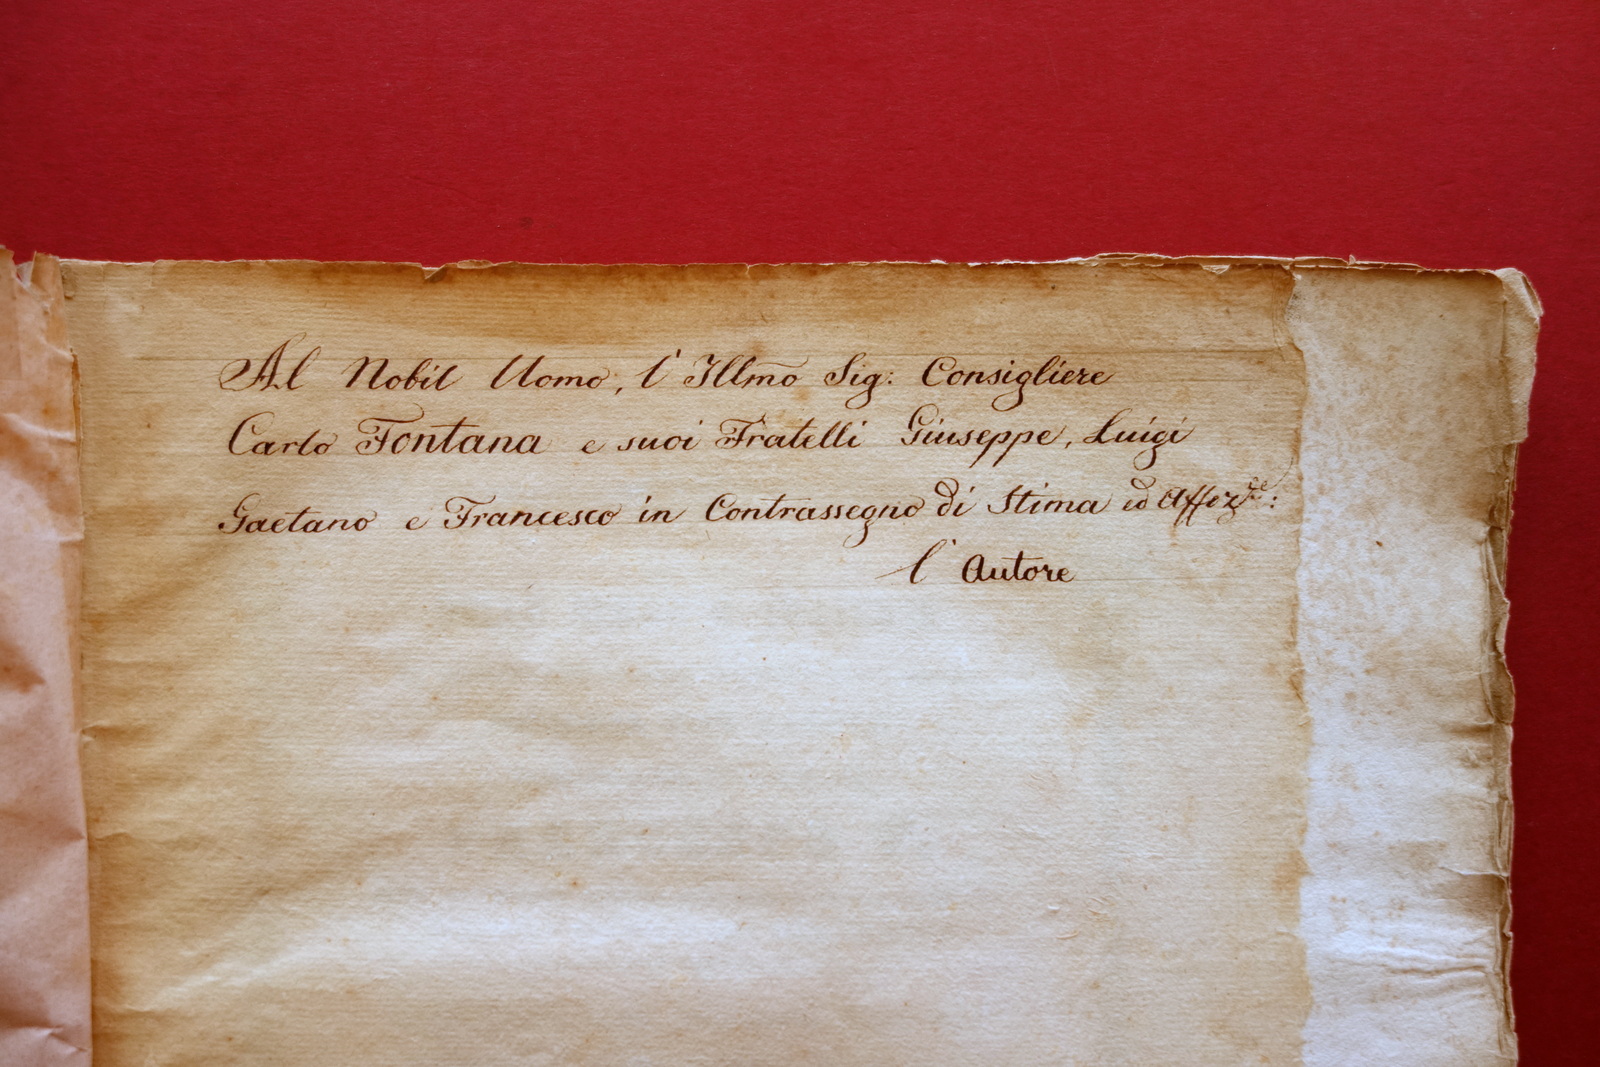 Al Nobil Uomo, l'Illmo Sig: Consigliere
Carlo Fontana e suoi Fratelli Giuseppe, Luigi
Gaetano e Francesco in Contrassegno di Stima ed Affezne:
l'Autore